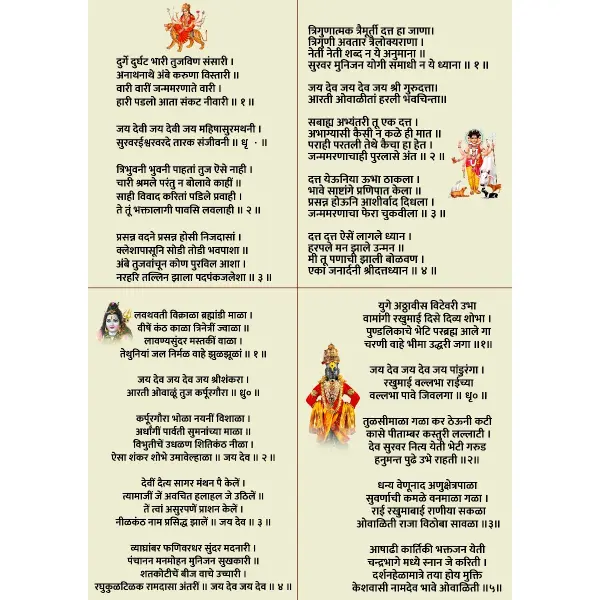 दुर्गे दुर्घट भारी तुजविण संसारी ।
अनाथनाथे अंबे करुणा विस्तारी ॥
वारी वारीं जन्ममरणाते वारी ।
हारी पडलो आता संकट नीवारी ॥ १ ॥
जय देवी जय देवी जय महिषासुरमथनी ।
सुरवरईश्वरवरदे तारक संजीवनी ॥ धृ · ॥
त्रिभुवनी भुवनी पाहतां तुज ऐसे नाही ।
चारी श्रमले परंतु न बोलावे काहीं ॥
साही विवाद करितां पडिले प्रवाही ।
ते तूं भक्तालागी पावसि लवलाही ॥ २ ॥
प्रसन्न वदने प्रसन्न होसी निजदासां ।
क्लेशापासूनि सोडी तोडी भवपाशा ॥
अंबे तुजवांचून कोण पुरविल आशा ।
नरहरि तल्लिन झाला पदपंकजलेशा ॥ ३ ॥
त्रिगुणात्मक त्रैमूर्ती दत्त हा जाणा।
त्रिगुणी अवतार त्रैलोक्यराणा ।
नेती नेती शब्द न ये अनुमाना ॥
सुरवर मुनिजन योगी समाधी न ये ध्याना ॥ १ ॥
जय देव जय देव जय श्री गुरुदत्ता।
आरती ओवाळीतां हरली भवचिन्ता॥
सबाह्य अभ्यंतरी तू एक दत्त ।
अभाग्यासी कैसी न कळे ही मात ॥
पराही परतली तेथे कैचा हा हेत ।
जन्ममरणाचाही पुरलासे अंत ॥ २ ॥
दत्त येऊनिया ऊभा ठाकला ।
भावे साष्टांगे प्रणिपात केला ॥
प्रसन्न होऊनि आशीर्वाद दिधला ।
जन्ममरणाचा फेरा चुकवीला ॥ ३ ॥
दत्त दत्त ऐसें लागले ध्यान ।
हरपले मन झाले उन्मन ॥
मी तू पणाची झाली बोळवण ।
एका जनार्दनी श्रीदत्तध्यान ॥ ४ ॥
लवथवती विक्राळा ब्रह्मांडी माळा ।
वीषें कंठ काळा त्रिनेत्रीं ज्वाळा ॥
लावण्यसुंदर मस्तकीं वाळा ।
तेथुनियां जल निर्मळ वाहे झुळझूळां ॥ १ ॥
जय देव जय देव जय श्रीशंकरा ।
आरती ओवाळूं तुज कर्पूरगौरा ॥ ध्रु० ॥
कर्पूरगौरा भोळा नयनीं विशाळा ।
अर्धांगीं पार्वती सुमनांच्या माळा ॥
विभुतीचें उधळण शितिकंठ नीळा ।
ऐसा शंकर शोभे उमावेल्हाळा ॥ जय देव ॥ २ ॥
देवीं दैत्य सागर मंथन पै केलें ।
त्यामाजीं जें अवचित हलाहल जे उठिलें ॥
तें त्वां असुरपणें प्राशन केलें ।
नीळकंठ नाम प्रसिद्ध झालें ॥ जय देव ॥ ३ ॥
व्याघ्रांबर फणिवरधर सुंदर मदनारी ।
पंचानन मनमोहन मुनिजन सुखकारी ॥
शतकोटीचें बीज वाचे उच्चारी ।
रघुकुळटिळक रामदासा अंतरीं ॥ जय देव जय देव ॥ ४ ॥
युगे अठ्ठावीस विटेवरी उभा
वामांगी रखुमाई दिसे दिव्य शोभा ।
पुण्डलिकाचे भेटि परब्रह्म आले गा
चरणी वाहे भीमा उद्धरी जगा ॥१॥
जय देव जय देव जय पांडुरंगा ।
रखुमाई वल्लभा राईच्या
वल्लभा पावे जिवलगा ॥ धृ० ॥
तुळसीमाळा गळा कर ठेऊनी कटी
कासे पीताम्बर कस्तुरी लल्लाटी ।
देव सुरवर नित्य येती भेटी गरुड
हनुमन्त पुढे उभे राहती ॥२॥
धन्य वेणूनाद अणुक्षेत्रपाळा
सुवर्णाची कमळे वनमाळा गळा ।
राई रखुमाबाई राणीया सकळा
ओवाळिती राजा विठोबा सावळा ॥३॥
आषाढी कार्तिकी भक्तजन येती
चन्द्रभागे मध्ये स्नान जे करिती ।
दर्शनहेळामात्रे तया होय मुक्ति
केशवासी नामदेव भावे ओवाळिती ॥५॥